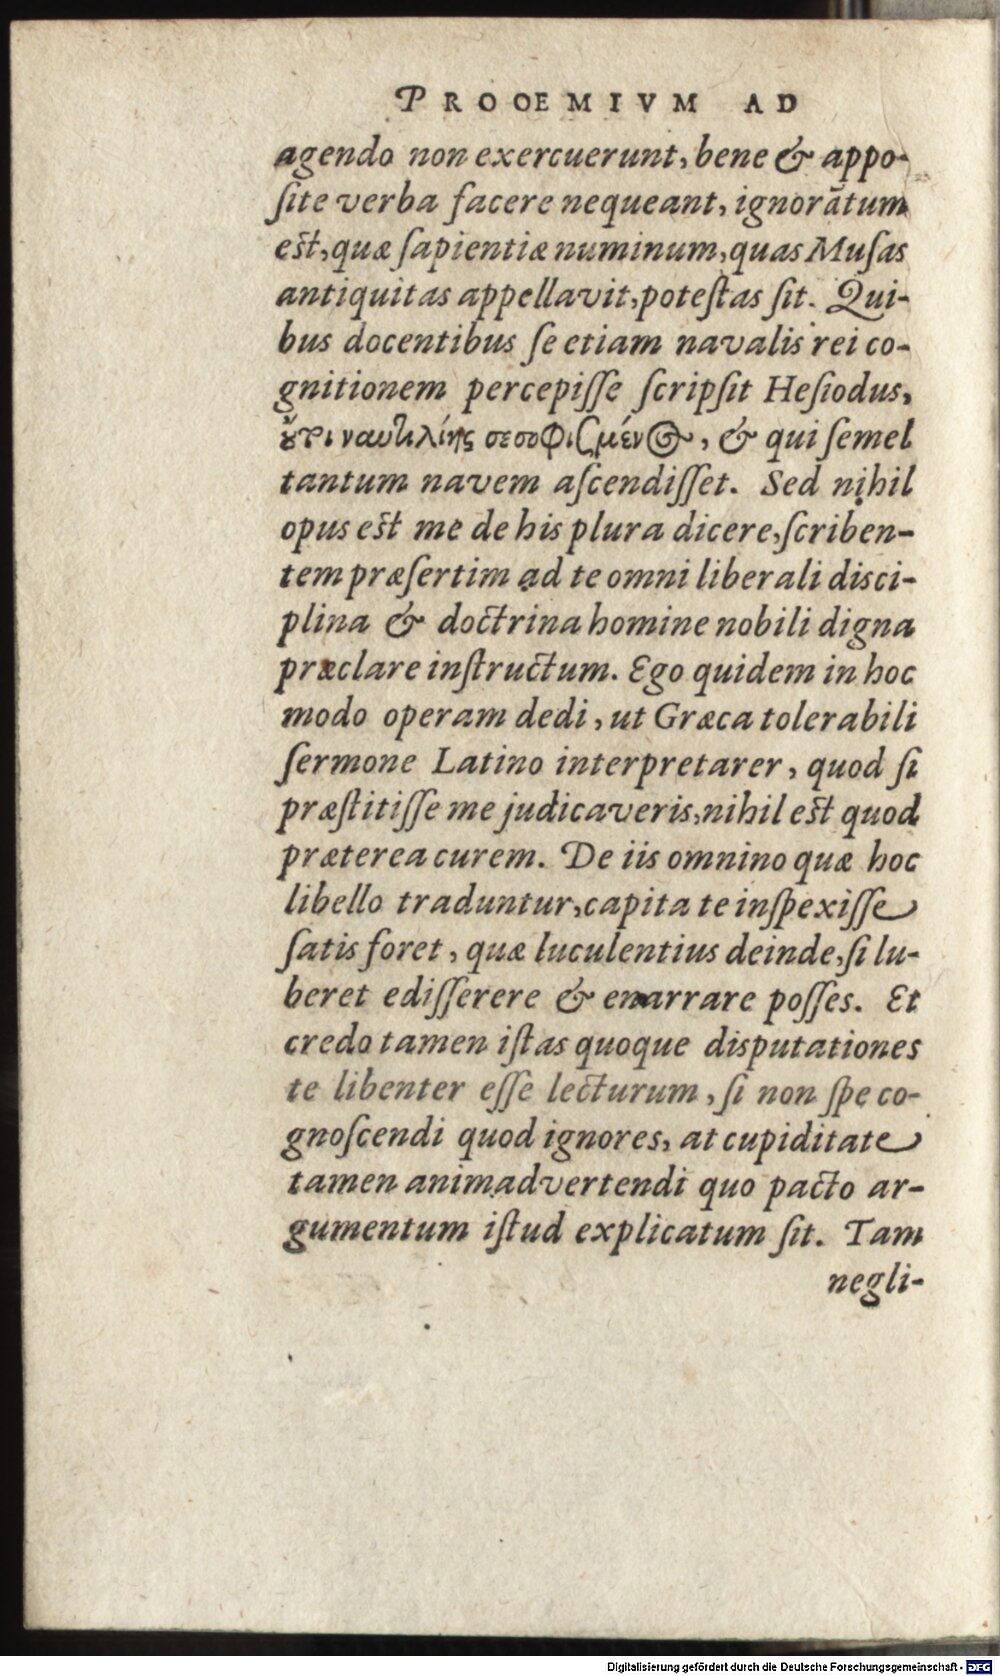 PROOEMIVM AD
agendo non exercuerunt, bene & appo-
ſite verba facere nequeant, ignorātum
est, quæ ſapientiæ numinum, quas Muſas
antiquitas appellavit, poteſtas ſit. Qui-
bus docentibus ſe etiam navalis rei co-
gnitionem percepiſſe ſcripſit Heſiodus,
οὔτι ναυτιλίης σεσοφισμένος, & qui ſemel
tantum navem aſcendiſſet. Sed nihil
opus est me de his plura dicere, ſcriben-
tem præſertim ad te omni liberali disci-
plina & doctrina homine nobili digna
præclare inſtructum. Ego quidem in hoc
modo operam dedi, ut Græca tolerabili
ſermone Latino interpretarer, quod ſi
præſtitiſſe me judicaveris, nihil est quod
præterea curem. De iis omnino quæ hoc
libello traduntur, capita te inſpexiſſe
ſatis foret, quæ luculentius deinde, ſi lu-
beret ediſſerere & enarrare poſſes. Et
credo tamen iſtas quoque disputationes
te libenter eſſe lecturum, ſi non ſpe co-
gnoſcendi quod ignores, at cupiditate
tamen animadvertendi quo pacto ar-
gumentum iſtud explicatum ſit. Tam
negli-
Digitalisierung gefördert durch die Deutsche Forschungsgemeinschaft - DFG